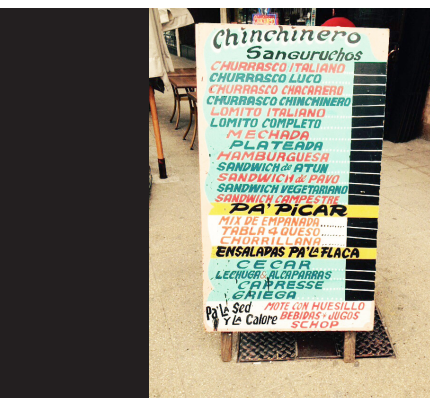 Chinchinero
Sanguruchos
CHURRASCO ITALIANO
CHURRASCO LUCO
CHURRASCO CHACARERO
CHURRASCO CHINCHINERO
LOMITO ITALIANO
LOMITO COMPLETO
MECHADA
PLATEADA
HAMBURGUESA
SANDWICH de ATUN
SANDWICH de PAVO
SANDWICH VEGETARIANO
SANDWICH CAMPESTRE
PA' PiCAR
MIX DE EMPANADA
TABLA 4 QUESO
CHORRILLANA
ENSALADAS PA'LA FLACA
CECAR
LECHUGA & ALCAPARRAS
CAPRESSE
GRIEGA
Pa' La Sed
Y La Calore
MOTE CON HUESILLO
BEBIDAS - JUGOS
SCHOP